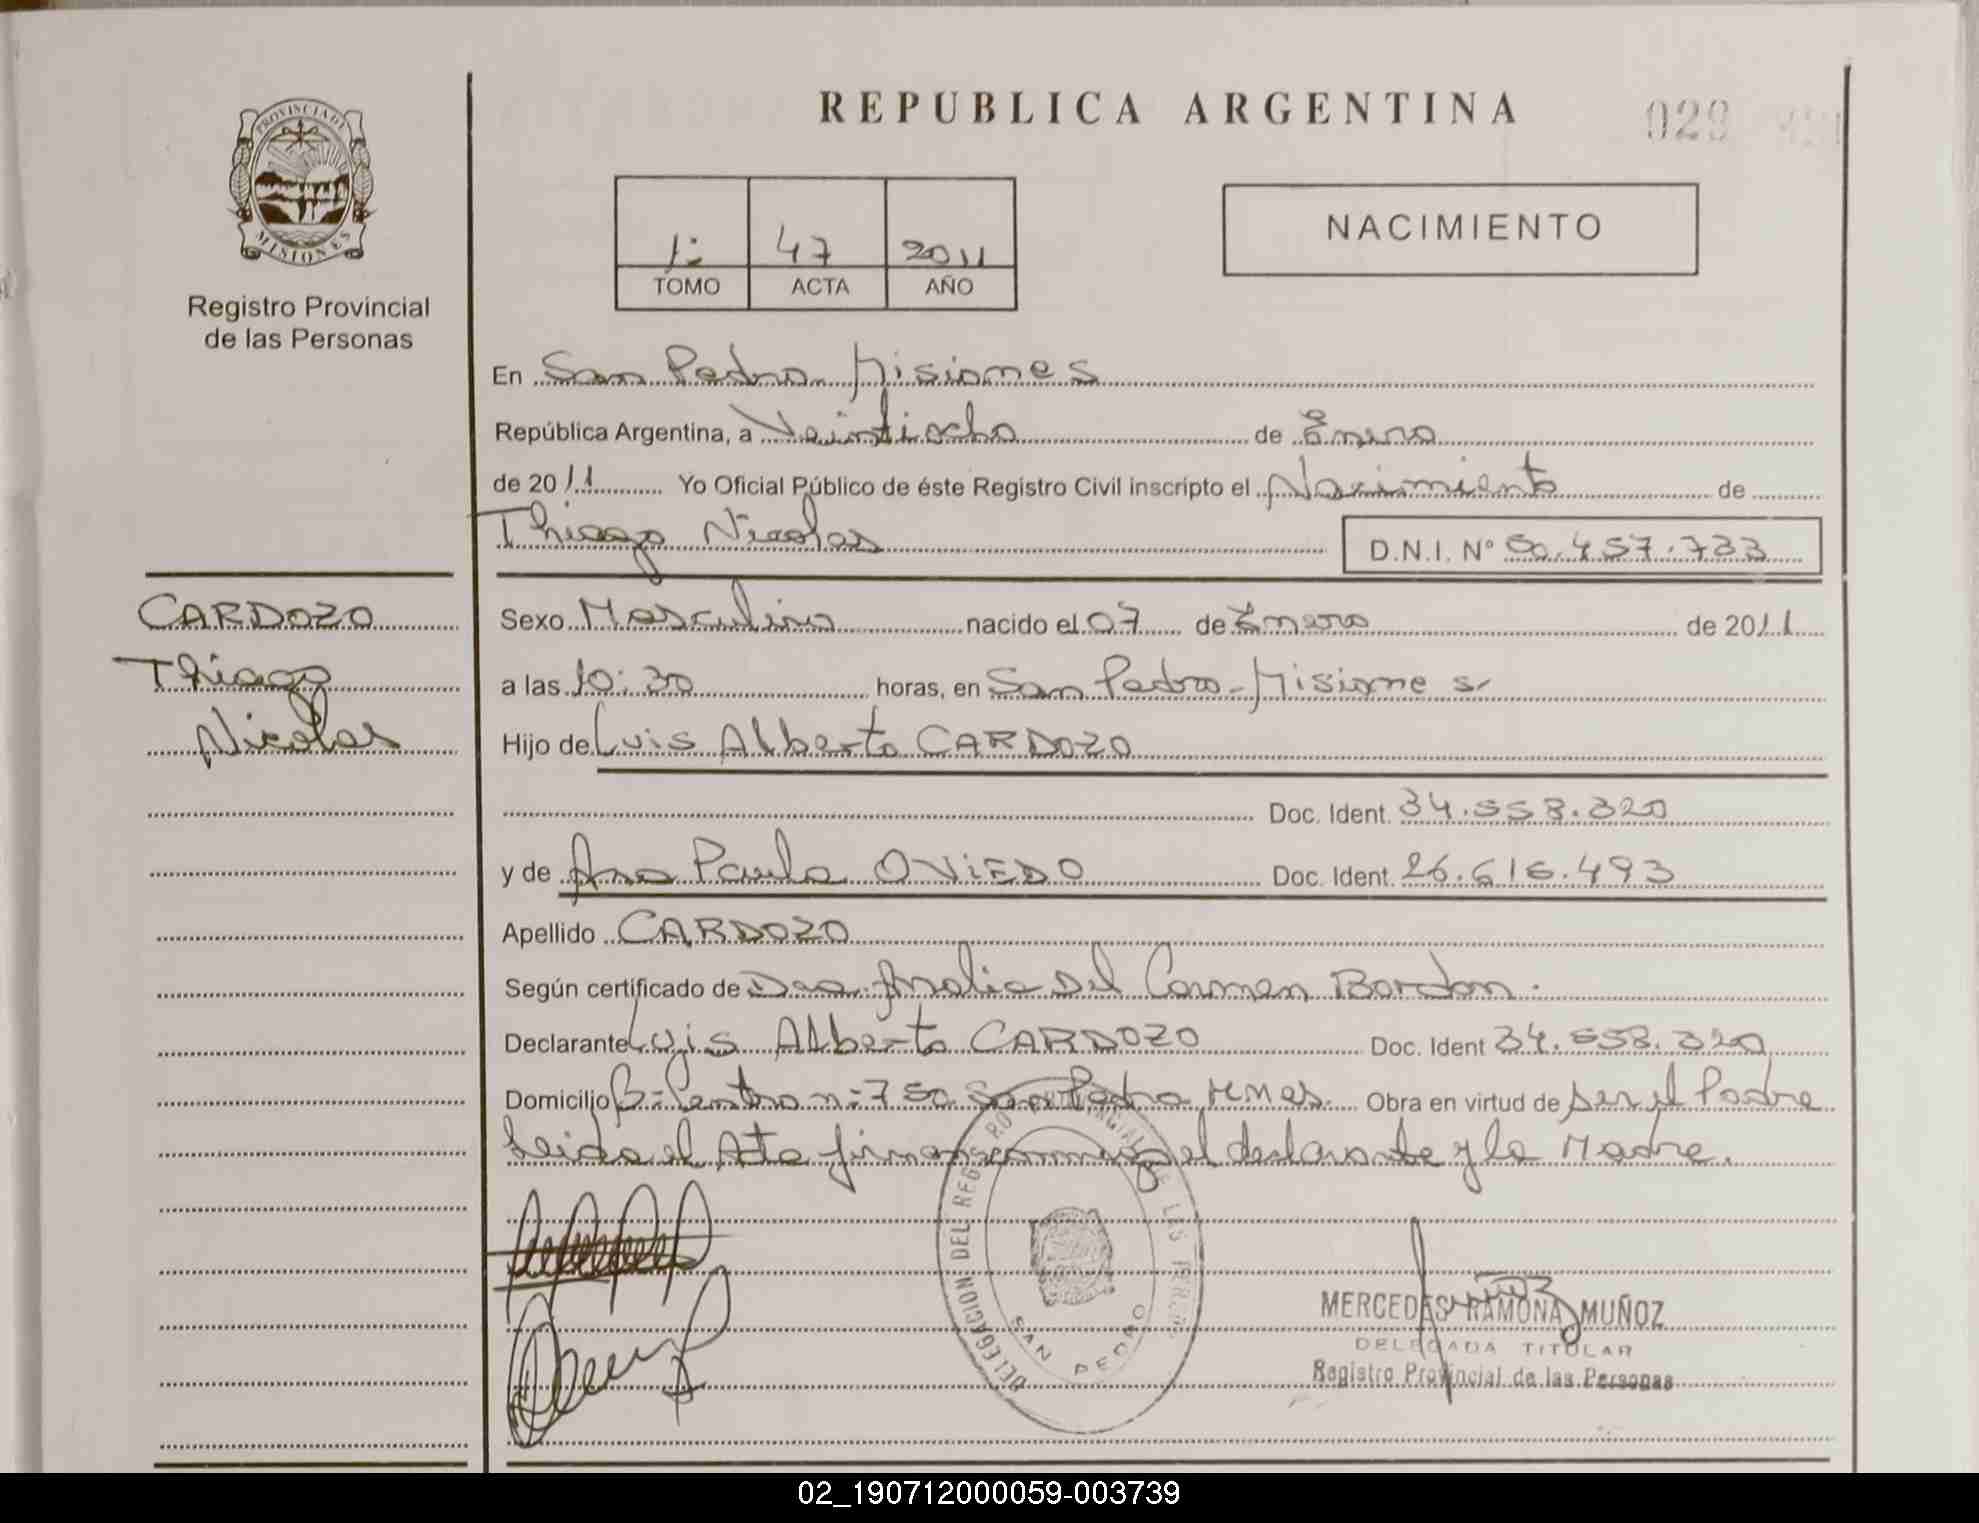 REPUBLICA ARGENTINA
029
PROVINCIA DE
MISIONES
Registro Provincial
de las Personas
NACIMIENTO
1: 47 2011
TOMO ACTA AÑO
En San Pedro Misiones
República Argentina, a Veintiocho de Enero
de 2011 Yo Oficial Público de éste Registro Civil inscripto el Nacimiento de
Thiago Nicolas D.N.I. Nº 50.457.733
CARDOZO
Thiago
Nicolas
Sexo Masculino nacido el 07 de Enero de 2011
a las 10:30 horas, en San Pedro - Misiones
Hijo de Luis Alberto CARDOZO
Doc. Ident. 34.558.320
y de Ana Paula OVIEDO Doc. Ident. 26.616.493
Apellido CARDOZO
Según certificado de Dra. Analia Del Carmen Bordon.
Declarante Luis Alberto CARDOZO Doc. Ident 34.558.320
Domicilio B= Centro n=750 San Pedro Mnes. Obra en virtud de ser el Padre
Leida el Acta firman conmigo el declarante y la Madre.
DELEGACION DEL REG. PROVINCIAL DE LAS PERSONAS
SAN PEDRO
MERCEDES RAMONA MUÑOZ
DELEGADA TITULAR
Registro Provincial de las Personas
02_190712000059-003739